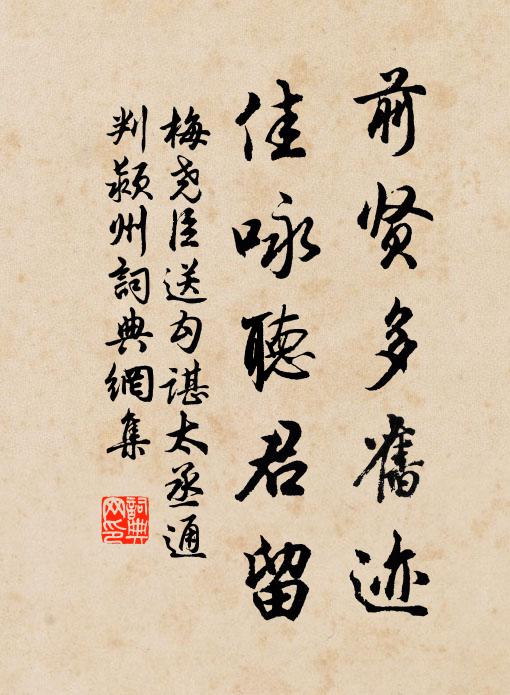 前贤多旧迹
佳咏聽君留
梅尧臣送勾諶太丞通
判颍州詞典網集
詞典网印